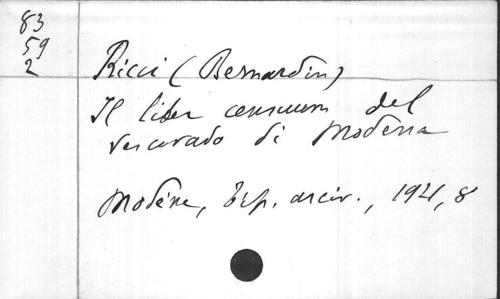 83
59
2
Ricci (Bernardin)
Il liber censuum del
vescovado di Modena
Modène, tip. arciv., 1921, 8